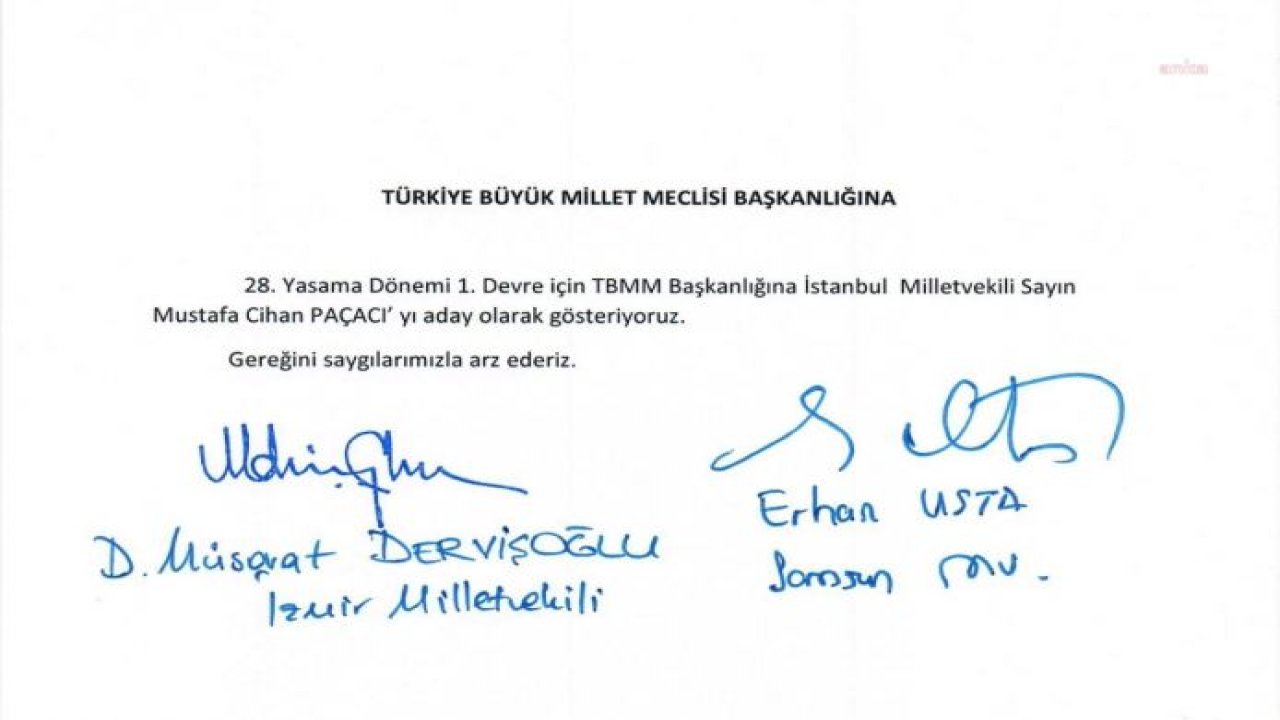 anka
TÜRKİYE BÜYÜK MİLLET MECLİSİ BAŞKANLIĞINA
28. Yasama Dönemi 1. Devre için TBMM Başkanlığına İstanbul Milletvekili Sayın
Mustafa Cihan PAÇACI' yı aday olarak gösteriyoruz.
Gereğini saygılarımızla arz ederiz.
D. Müsavat DERVİŞOĞLU
İzmir Milletvekili
Erhan USTA
Samsun MV.